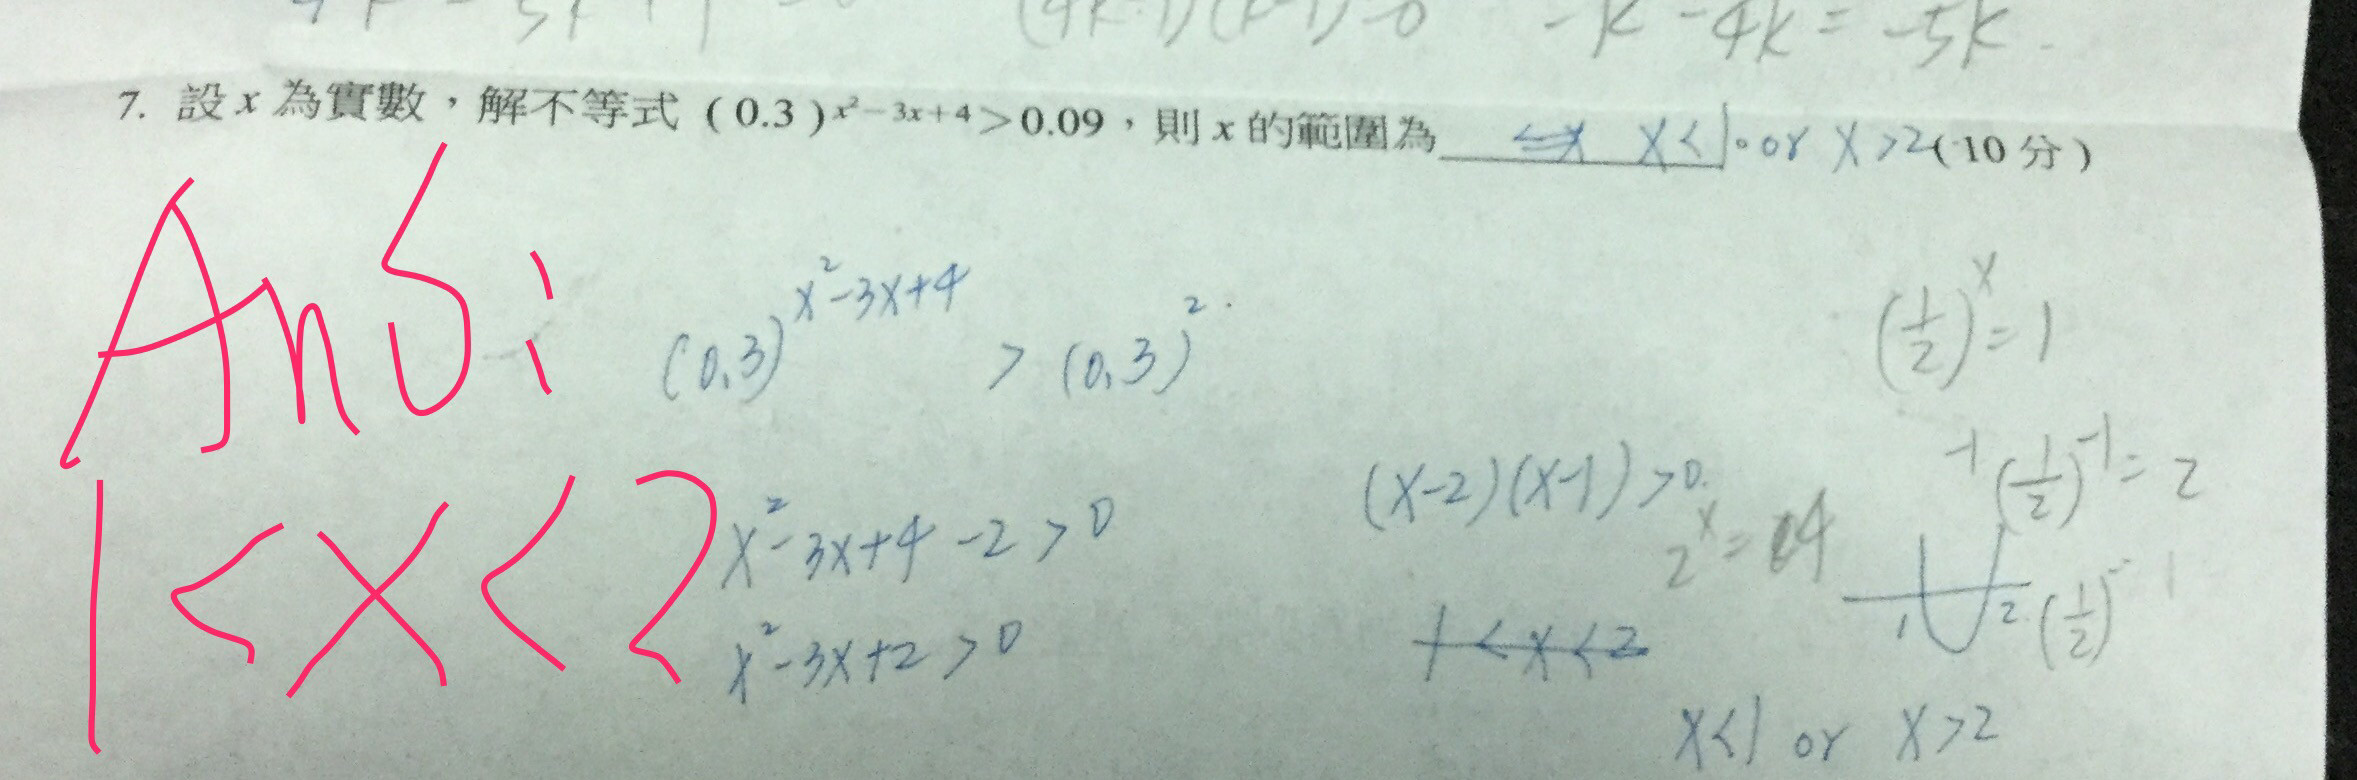 (4k-1)(k-1)=0 -k-4k=-5k
7. 設x為實數，解不等式 (0.3)^{x²-3x+4}>0.09，則x的範圍為 x<1 or x>2 (10分)
Ans:
(0.3)^{x²-3x+4} > (0.3)²
(1/2)^x=1
1<x<2
x²-3x+4-2>0
(x-2)(x-1)>0.
-1 (1/2)^{-1}=2
2^x=4
x²-3x+2>0
1<x<2
1 2
x<1 or x>2